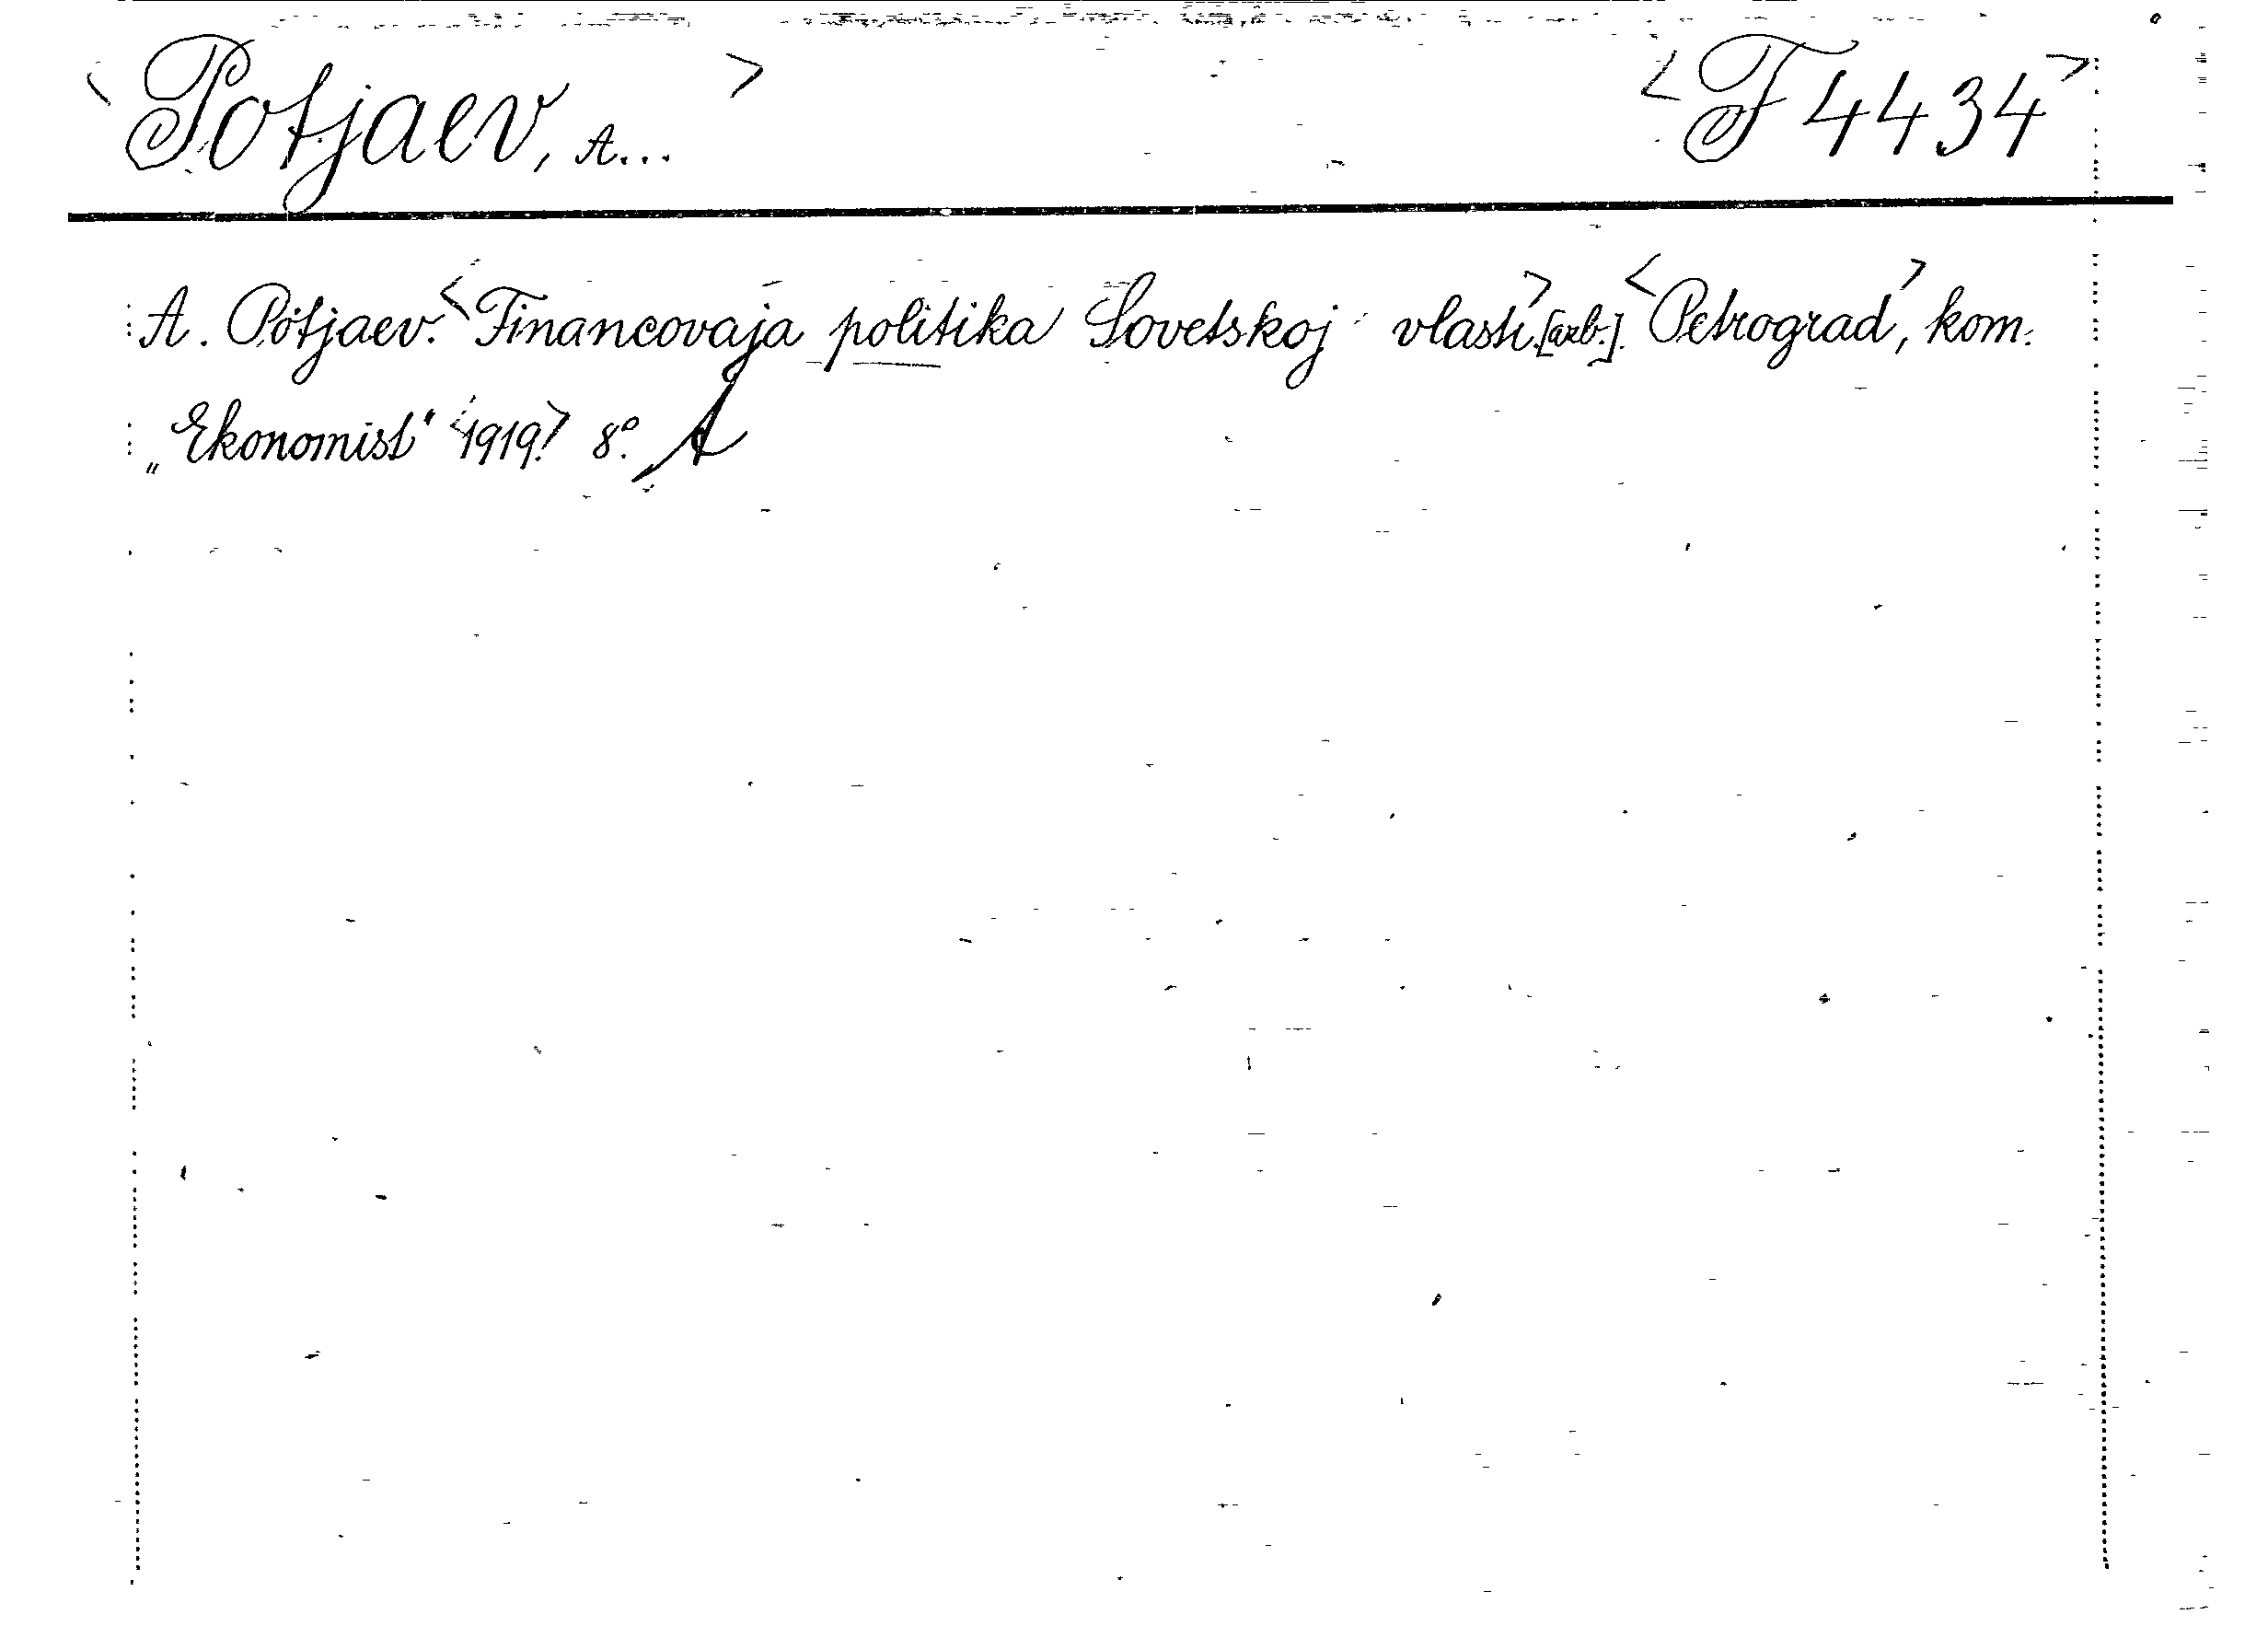 <Potjaev, A...> <F 4434>
A. Potjaev. <Financovaja politika Sovetskoj vlasti.> [azb.]. <Petrograd>, kom.
„Ekonomist“ <1919.> 8°. A